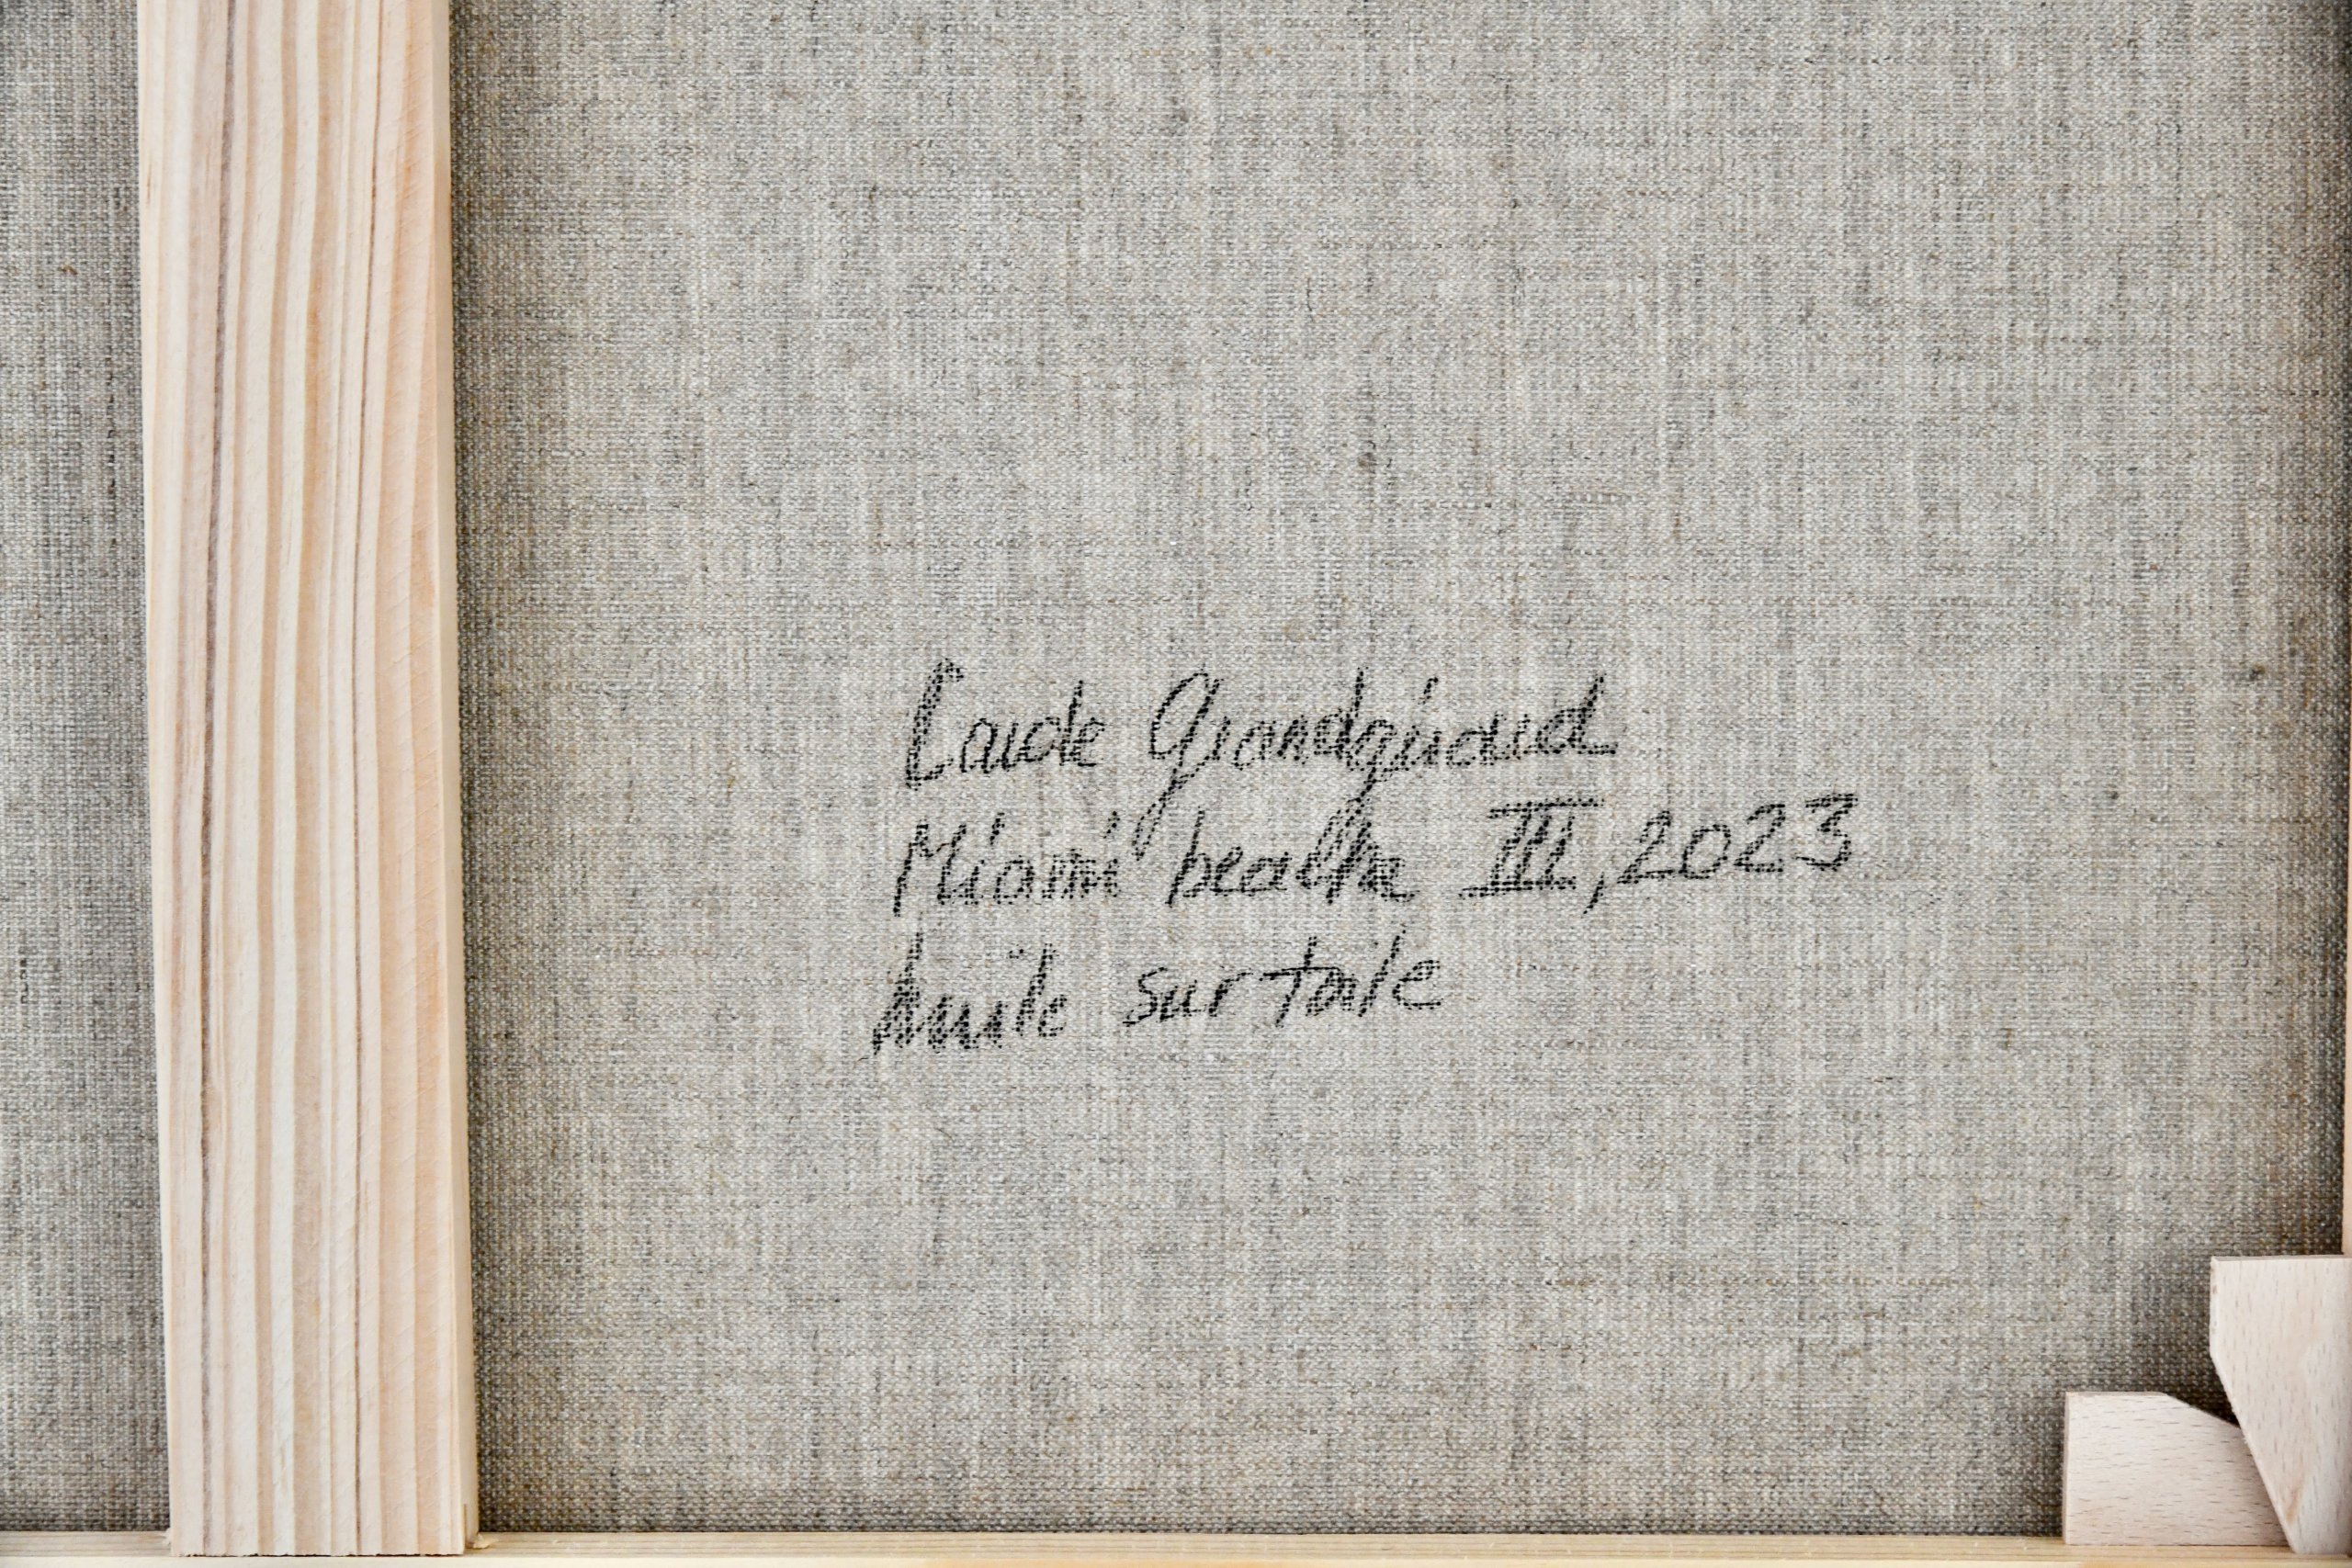 Carole Grandgirard
Miami beach III, 2023
huile sur toile